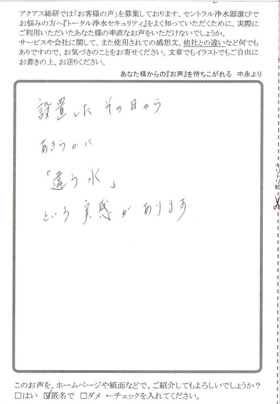 アクアス総研では「お客様の声」を募集しております。セントラル浄水器選びで
お悩みの方へ『トータル浄水セキュリティ』をよく知っていただくために、実際に
ご利用いただいたあなた様の率直なお声をいただけないでしょうか。
サービスや会社に関して、また使用されての感想文、他社との違いなど何でも
ありですので、お気づきのことをお寄せください。文章でもイラストでもご自由に
お書きの上、お送りください。
あなた様からの『お声』を待ちこがれる 中永より
設置した その日から
あきらかに
「違う水」
という実感があります
このお声を、ホームページや紙面などで、ご紹介してもよろしいでしょうか?
□はい ☑匿名で □ダメ ←チェックを入れてください。